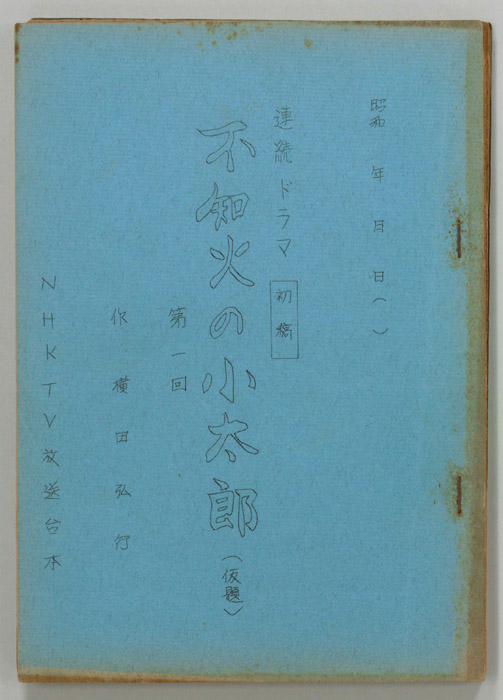 昭和 年 月 日( )
連続ドラマ 初稿
不知火の小太郎(仮題)
第一回
作 横田弘行
NHKTV放送台本